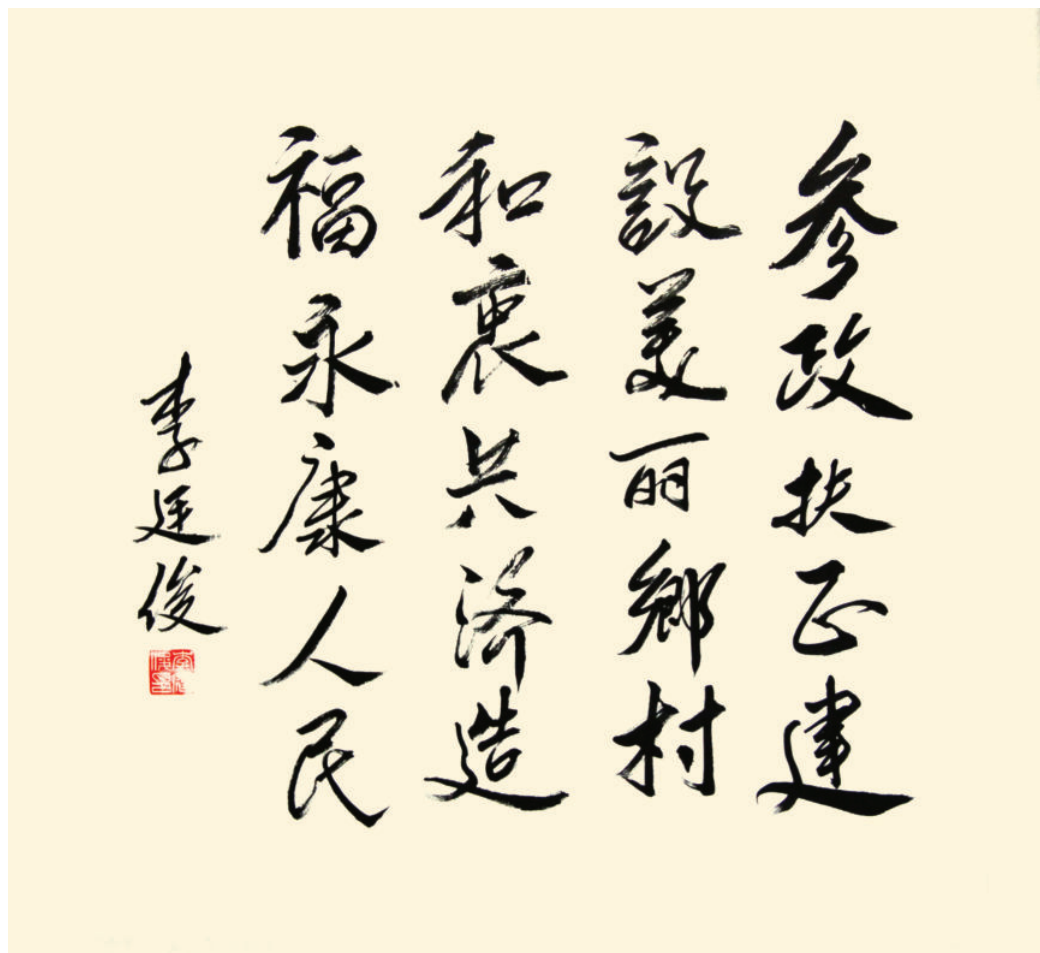 参政扶正建
設美丽鄉村
和衷共济造
福永康人民
李廷俊